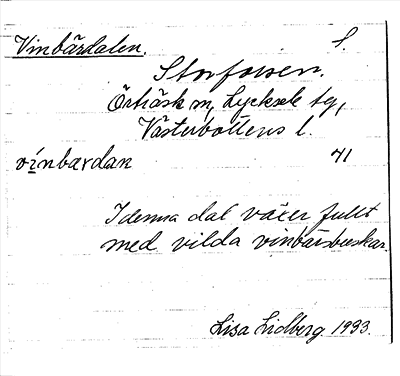 Vinbärdalen. S.
Storforsen.
Örträsk sn, Lycksele tg,
Västerbottens l.
vinbardan 41
I denna dal växer fullt
med vilda vinbärsbuskar.
Lisa Lidberg 1993.